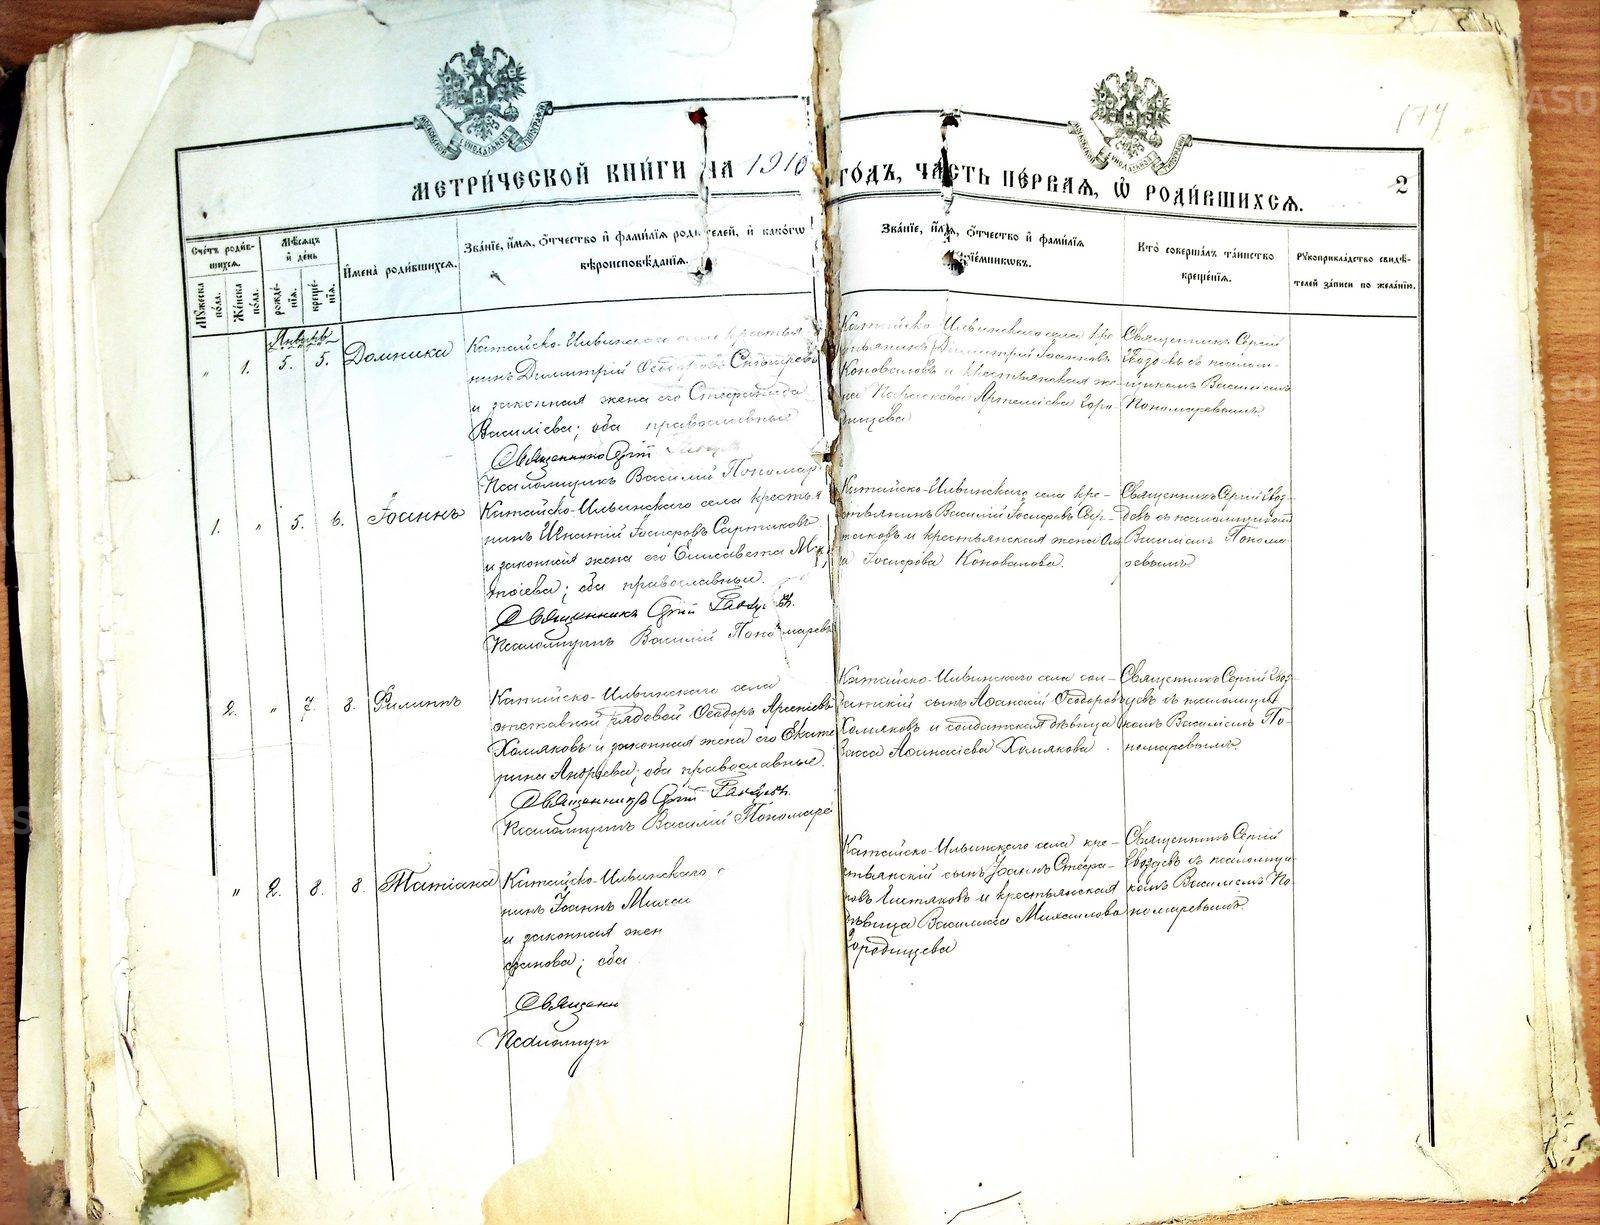 174
МЕТРИ́ЧЕСКОЙ КНИ́ГИ НА 1910 ГО́ДЪ, ЧА́СТЬ ПЕ́РВАЯ, Ѡ РОДИ́ВШИХСЯ.
2
Сче́тъ роди́в-
шихся.
Мѣ́сяцъ
и де́нь
Му́жеска по́ла.
Же́нска по́ла.
рожде́-
нїя.
креще́-
нїя.
Имена̀ роди́вшихся.
Зва́нїе, и́мя, о́тчество и фами́лїя роди́телей, и како́гѡ
вѣроисповѣ́данїя.
Зва́нїе, и́мя, о́тчество и фами́лїя
прїе́мникѡвъ.
Кто̀ соверша́лъ та́инство
креще́нїя.
Рꙋкоприкла́дство свидѣ́-
телей за́писи по жела́нїю.
Январь
" 1. 5. 5. Домника
Катайско-Ильинскаго села крестья
нинъ Димитрій Ѳеодоровъ
и законная жена его Стефанида
Василіева; оба православные
Священникъ Сергій
Псаломщикъ Василій Пономар
Катайско-Ильинскаго села кре-
стьянинъ Димитрій Іоанновъ
Коноваловъ и крестьянская же-
на Параскева Артеміева Горо-
дищева
Священникъ Сергій
Гвоздевъ съ псалом-
щикомъ Василіемъ
Пономаревымъ
1. " 5. 6. Іоаннъ
Катайско-Ильинскаго села крестья
нинъ Игнатій Іосифовъ Сартаковъ
и законная жена его Елисавета М
ѳіева; оба православные.
Священникъ Сергій Гвоздевъ.
Псаломщикъ Василій Пономаревъ
Катайско-Ильинскаго села кре-
стьянинъ Василій Іосифовъ Сар-
таковъ и крестьянская жена
Іосифова Коновалова.
Священникъ Сергій Гвоз-
девъ съ псаломщикомъ
Василіемъ Понома-
ревымъ
2. " 7. 8. Филиппъ
Катайско-Ильинскаго села
рядовой Ѳеодоръ Арсеніевъ
Хомяковъ и законная жена его Екате
рина Андреева; оба православные.
Священникъ Сергій Гвоздевъ.
Псаломщикъ Василій Пономаре
Катайско-Ильинскаго села сол-
датскій сынъ Аѳанасій Ѳеодоровъ
Хомяковъ и солдатская дѣвица
Васса Аѳанасіева Хомякова.
Священникъ Сергій Гвоз-
девъ съ псаломщи-
комъ Василіемъ По-
номаревымъ.
" 2. 8. 8. Татіана
Катайско-Ильинскаго с
нинъ Іоаннъ Михаи
и законная жен
фанова; оба
Священн
Псаломщи
Катайско-Ильинскаго села кре-
стьянскій сынъ Іоаннъ Стефа-
новъ и крестьянская
дѣвица Василисса Михаилова
Городищева
Священникъ Сергій
Гвоздевъ съ псаломщи-
комъ Василіемъ По-
номаревымъ.